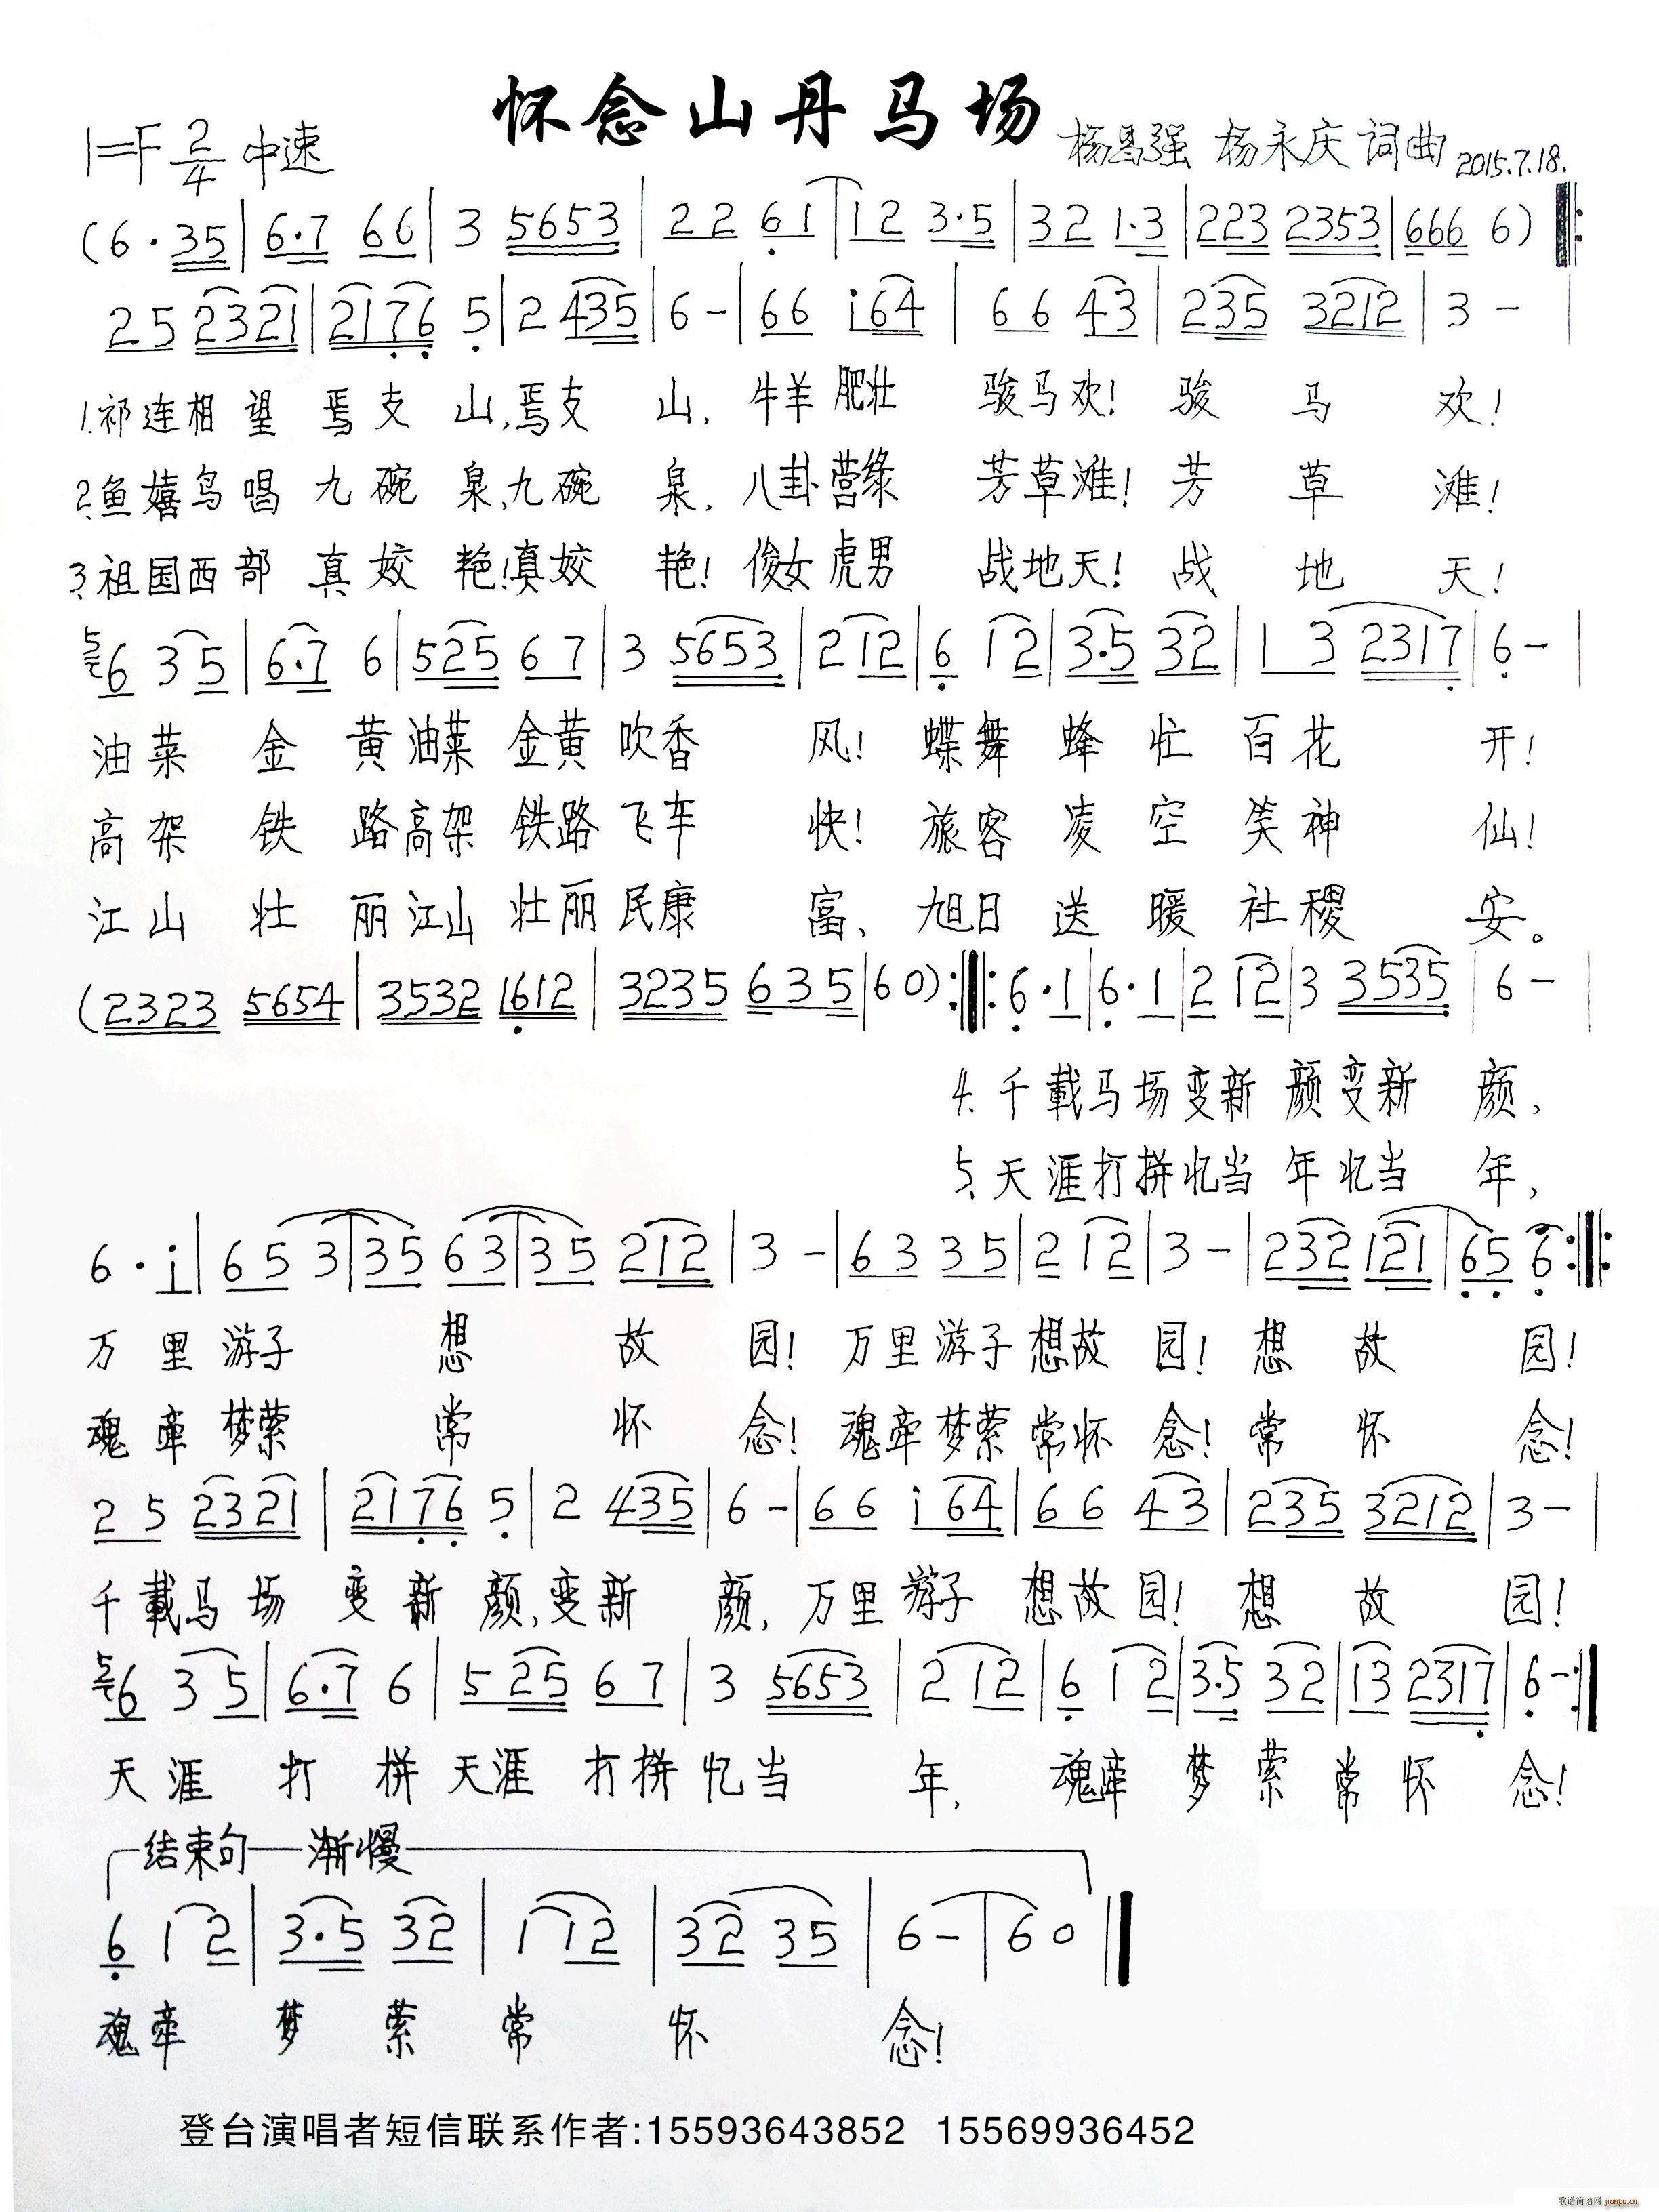 怀念山丹马场
1=F 2/4 中速
杨昌强 杨永庆 词曲 2015.7.18.
(6·35|6·7 66|3 5653|22 61|12 3·5|32 1·3|223 2353|666 6)‖:
25 2321|2176 5|2 435|6-|66 i64|66 43|235 3212|3-|
1.祁连相望焉支山,焉支山,牛羊肥壮骏马欢!骏马欢!
2.鱼嬉鸟唱九碗泉、九碗泉,八卦营缘芳草滩!芳草滩!
3.祖国西部真姣艳!真姣艳!俊女虎男战地天!战地天!
5 6 35|6·7 6|525 67|3 5653|212|6 12|3·5 32|1 3 2317|6-|
油菜金黄油菜金黄吹香风!蝶舞蜂忙百花开!
高架铁路高架铁路飞车快!旅客凌空笑神仙!
江山壮丽江山壮丽民康富、旭日送暖社稷安。
(2323 5654|3532 1612|3235 635|60):‖:6·1|6·1|2 12|3 3535|6-|
4.千载马场变新颜变新颜,
5.天涯打拼忆当年忆当年,
6·i|653|35 63|35 212|3-|63 35|2 12|3-|232 121|65 6:‖:
万里游子想故园!万里游子想故园!想故园!
魂牵梦萦常怀念!魂牵梦萦常怀念!常怀念!
25 2321|2176 5|2 435|6-|66 i64|66 43|235 3212|3-|
千载马场变新颜,变新颜,万里游子想故园!想故园!
5 6 35|6·7 6|525 67|3 5653|2 12|6 12|3·5 32|13 2317|6-:‖
天涯打拼天涯打拼忆当年,魂牵梦萦常怀念!
结束句—渐慢
6 12|3·5 32|1 12|32 35|6-|60‖
魂牵梦萦常怀念!
登台演唱者短信联系作者:15593643852 15569936452
歌谱简谱网 jianpu.cn